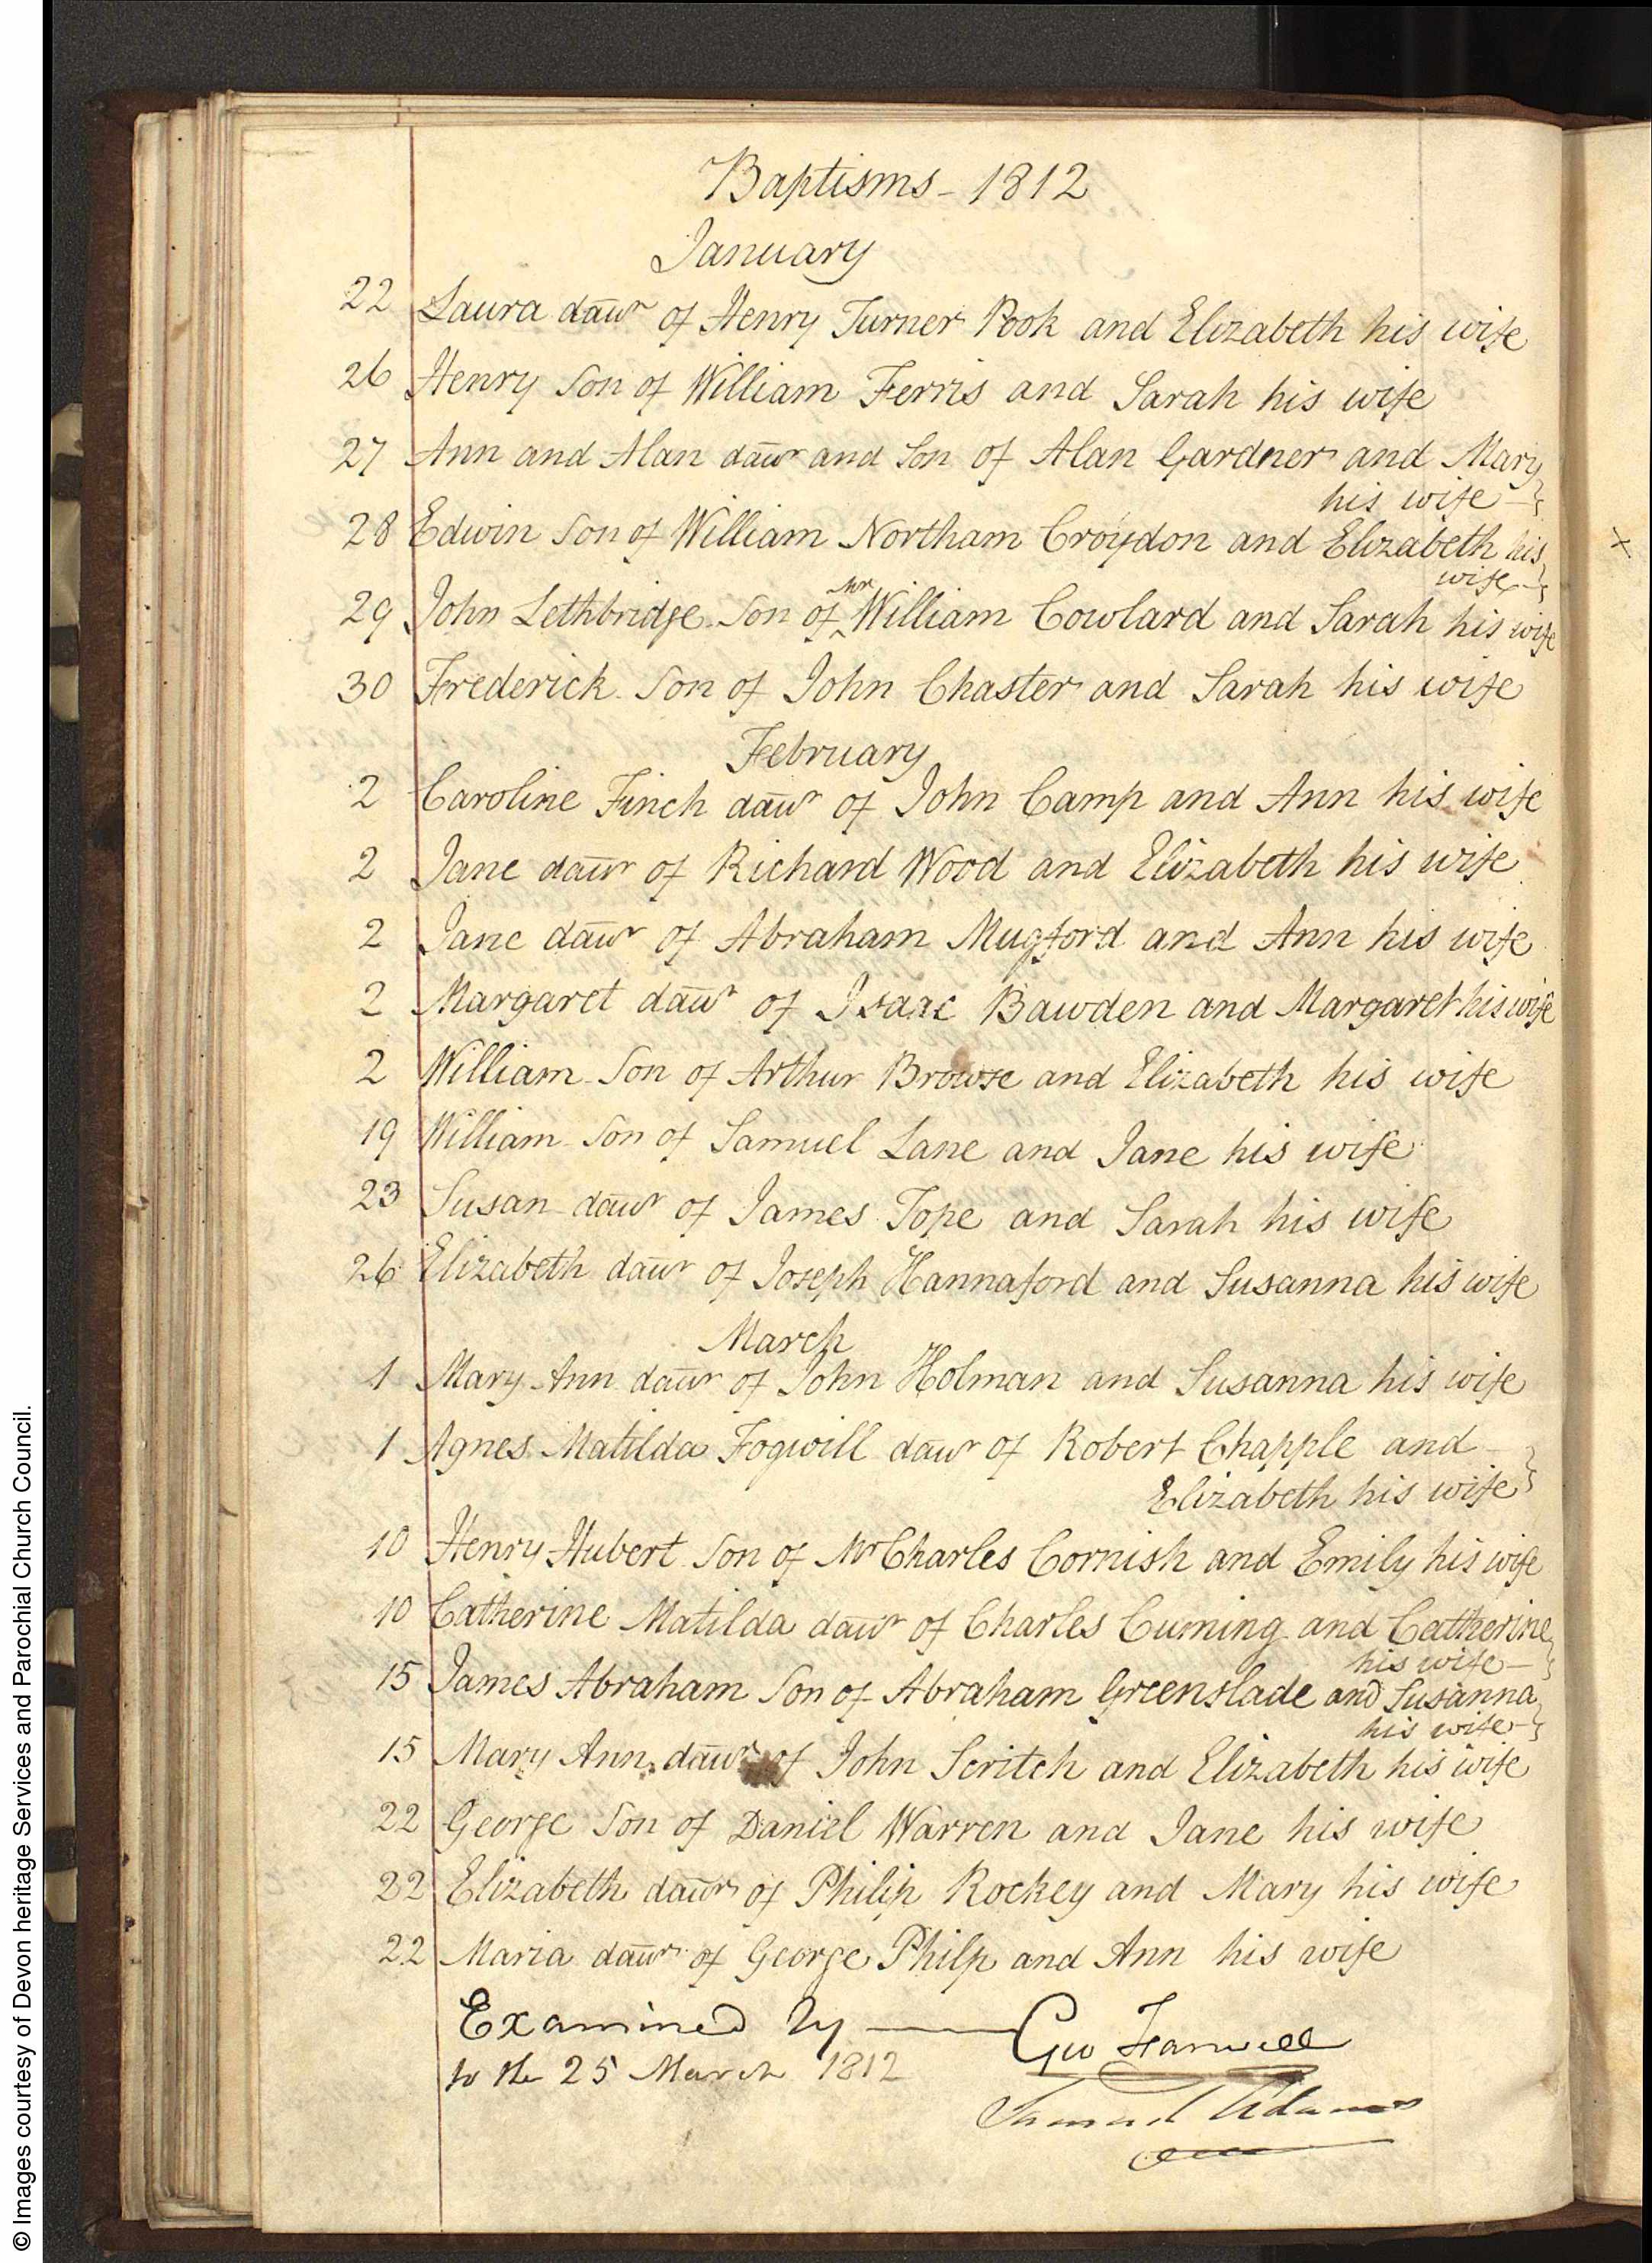 Baptisms - 1812
January
22 Laura dau̅r of Henry Turner Pook and Elizabeth his wife
26 Henry Son of William Ferris and Sarah his wife
27 Ann and Alan dau̅r and Son of Alan Gardner and Mary
his wife
28 Edwin Son of William Northam Croydon and Elizabeth his
wife
29 John Lethbridge Son of ^Mr William Cowlard and Sarah his wife
30 Frederick Son of John Chaster and Sarah his wife
February
2 Caroline Finch dau̅r of John Camp and Ann his wife
2 Jane dau̅r of Richard Wood and Elizabeth his wife
2 Jane dau̅r of Abraham Mugford and Ann his wife
2 Margaret dau̅r of Isaac Bawden and Margaret his wife
2 William Son of Arthur Browse and Elizabeth his wife
19 William Son of Samuel Lane and Jane his wife
23 Susan dau̅r of James Tope and Sarah his wife
26 Elizabeth dau̅r of Joseph Hannaford and Susanna his wife
March
1 Mary Ann dau̅r of John Holman and Susanna his wife
1 Agnes Matilda Fogwill dau̅r of Robert Chapple and
Elizabeth his wife
10 Henry Hubert Son of Mr Charles Cornish and Emily his wife
10 Catherine Matilda dau̅r of Charles Cuming and Catherine
his wife
15 James Abraham Son of Abraham Greenslade and Susanna
his wife
15 Mary Ann dau̅r of John Scritch and Elizabeth his wife
22 George Son of Daniel Warren and Jane his wife
22 Elizabeth dau̅r of Philip Rockey and Mary his wife
22 Maria dau̅r of George Philp and Ann his wife
Examined by — Geo Farwell
to the 25 March 1812
Samuel Adams
© Images courtesy of Devon heritage Services and Parochial Church Council.